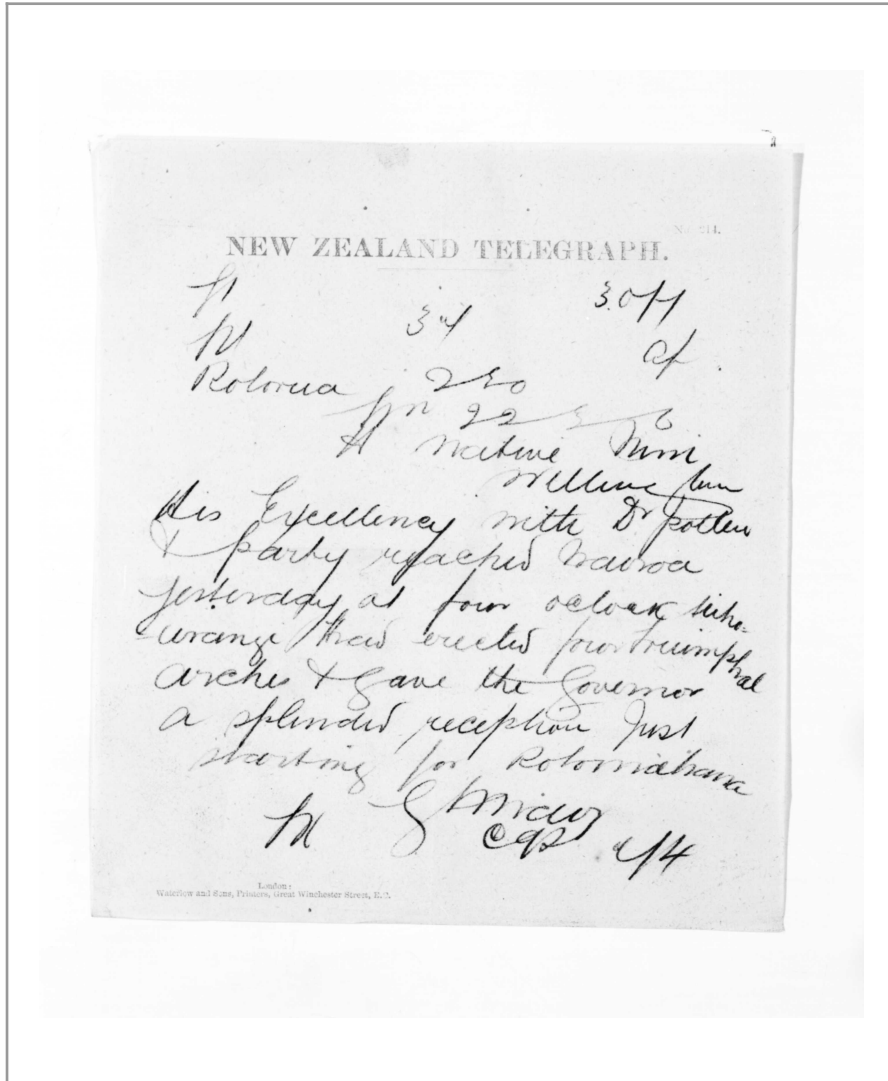 NEW ZEALAND TELEGRAPH.
34
Rotorua 230
Native Min
Wellington
His Excellency with Dr Pollen
& party reached Wairoa
yesterday at four oclock Tuho-
-urangi had erected four triumphal
arches & gave the Governor
a splendid reception Just
starting for Rotomahana
London:
Waterlow and Sons, Printers, Great Winchester Street, E.C.